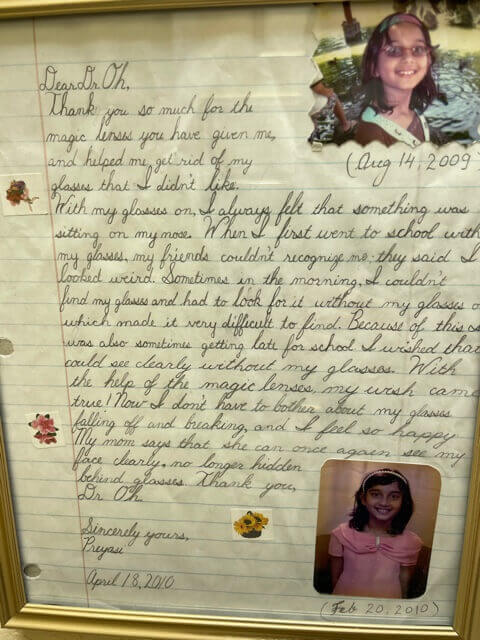 Dear Dr Oh,
Thank you so much for the
magic lenses you have given me,
and helped me, get rid of my
glasses that I didn't like.
With my glasses on, I always felt that something was
sitting on my nose. When I first went to school with
my glasses, my friends couldn't recognize me; they said I
looked weird. Sometimes in the morning, I couldn't
find my glasses and had to look for it without my glasses
which made it very difficult to find. Because of this I
was also sometimes getting late for school. I wished that
could see clearly without my glasses. With
the help of the magic lenses, my wish came
true! Now I don't have to bother about my glasses
falling off and breaking, and I feel so happy.
My mom says that she can once again see my
face clearly, no longer hidden
behind glasses. Thank you,
Dr. Oh.
Sincerely yours,
Preyasi
April 18, 2010
(Aug 14, 2009)
(Feb 20, 2010)